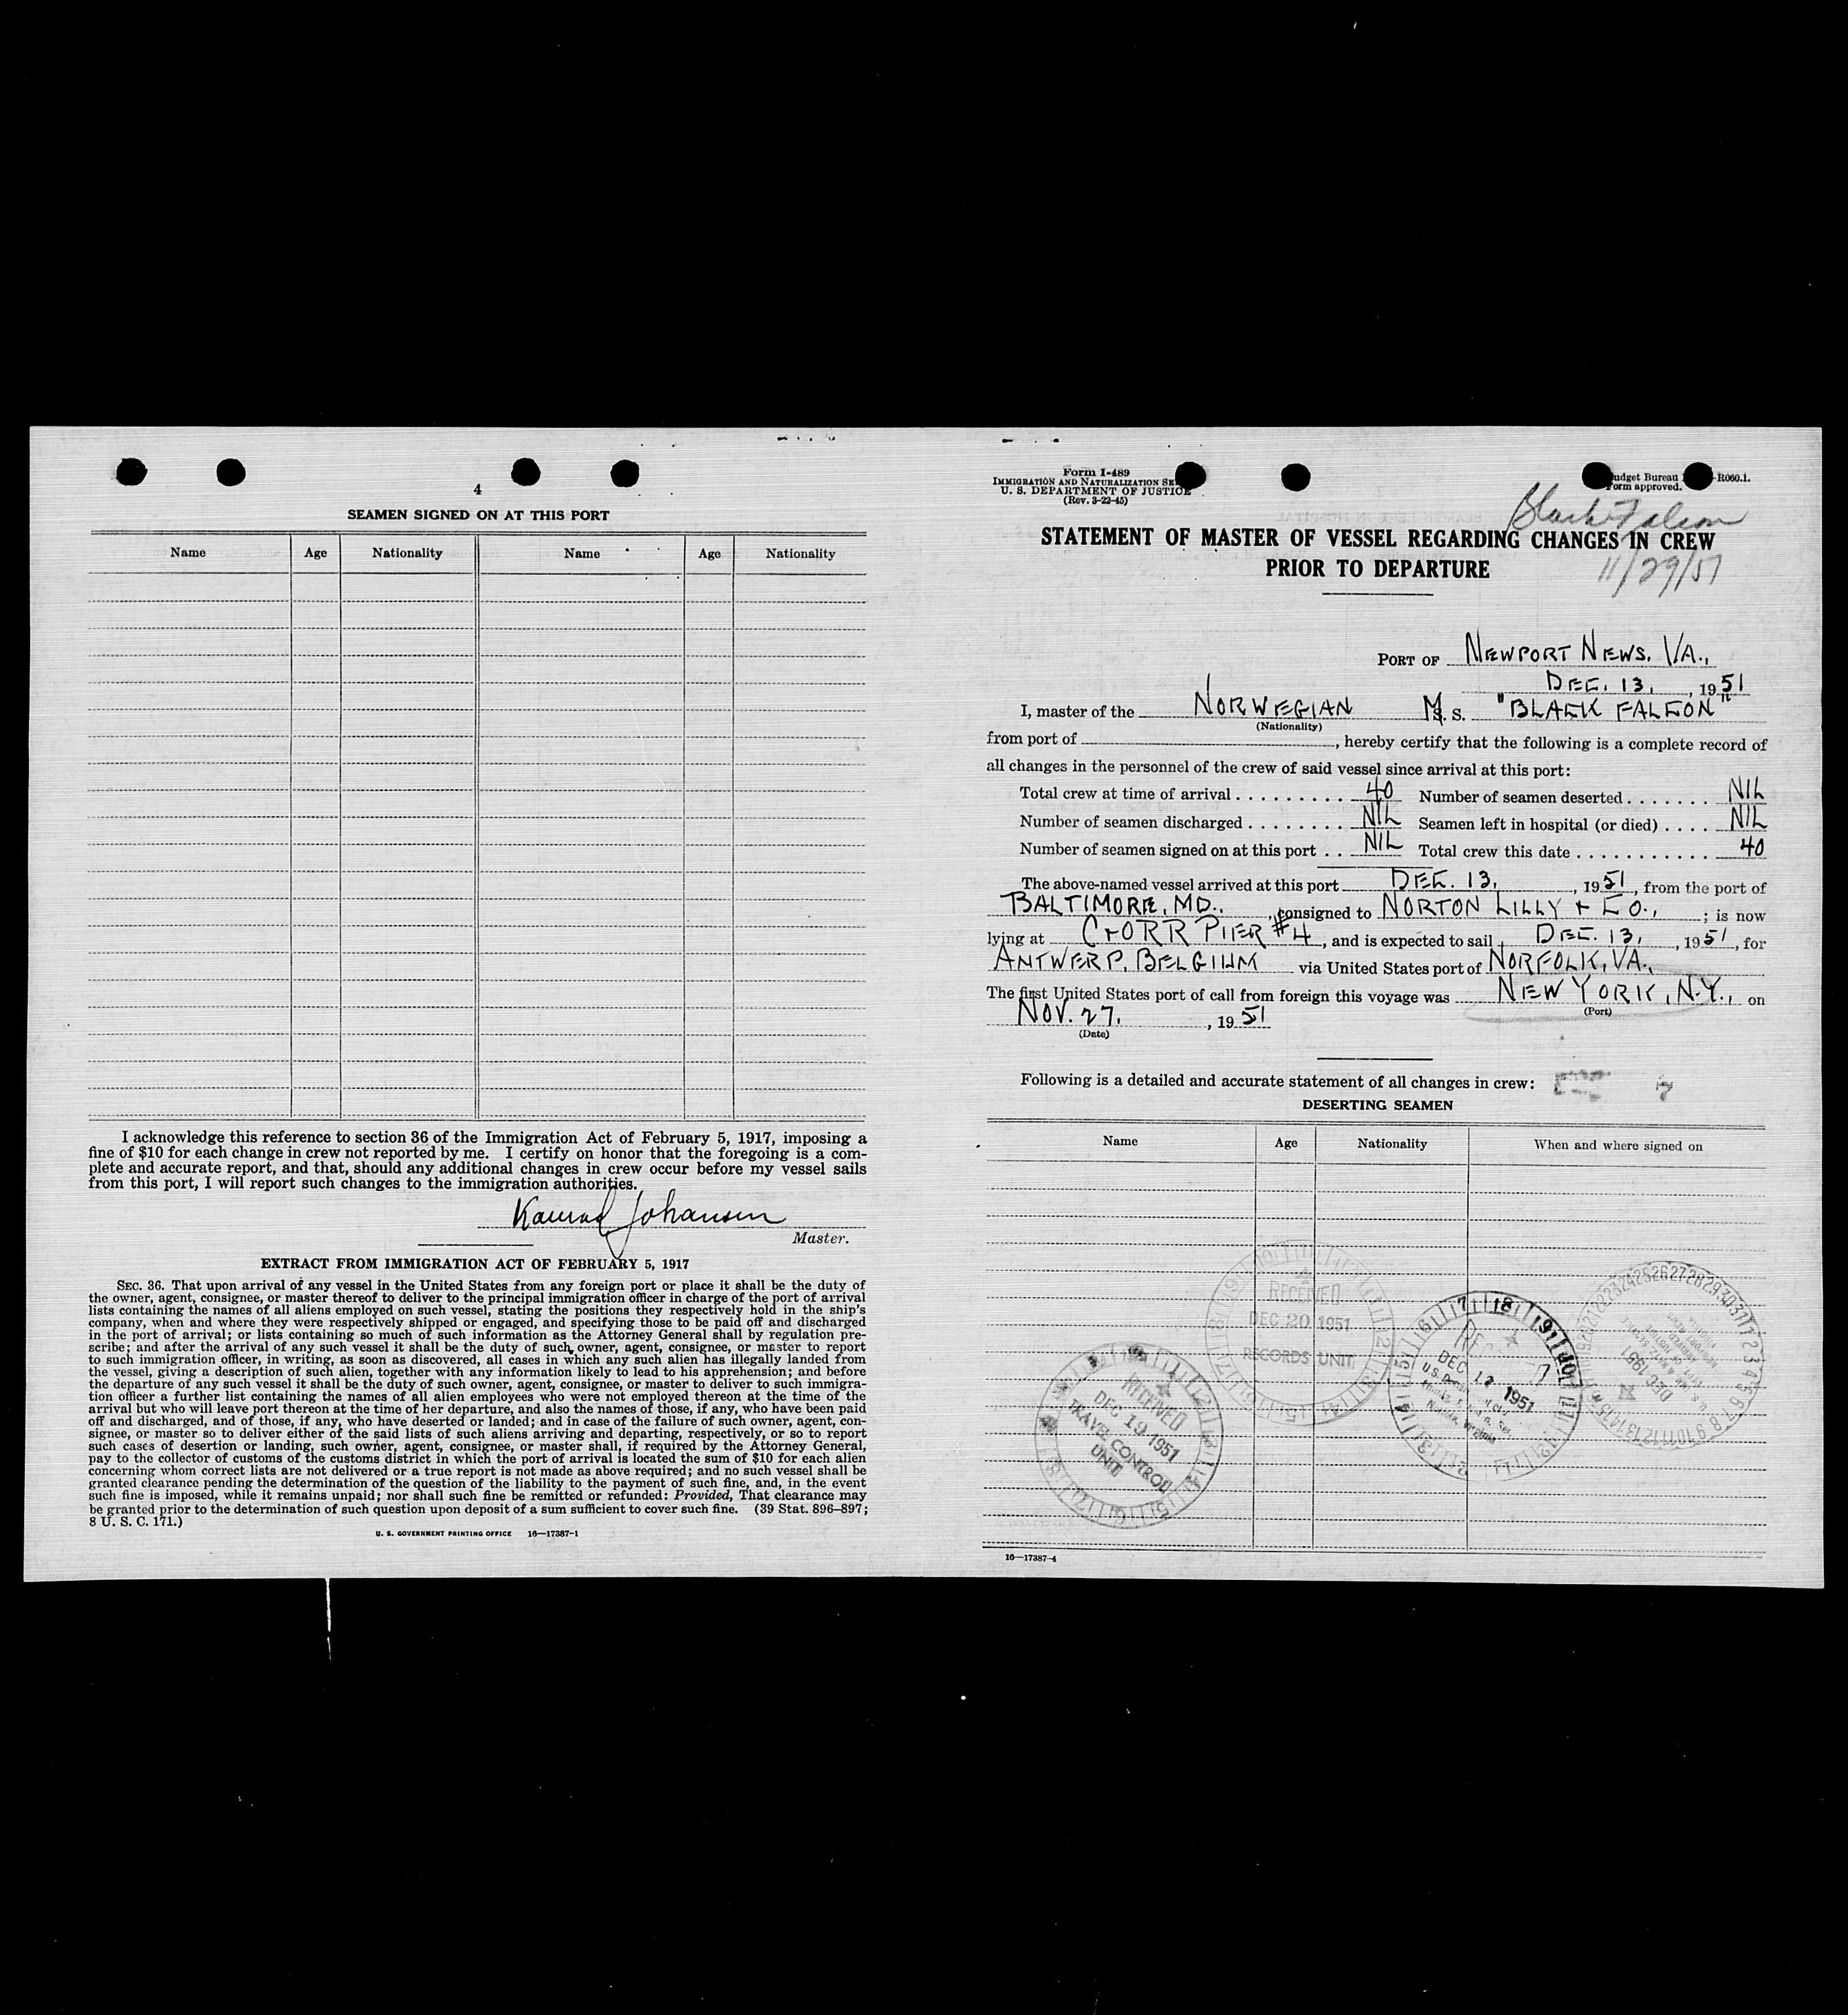 4
SEAMEN SIGNED ON AT THIS PORT
Name Age Nationality Name Age Nationality
I acknowledge this reference to section 36 of the Immigration Act of February 5, 1917, imposing a
fine of $10 for each change in crew not reported by me. I certify on honor that the foregoing is a com-
plete and accurate report, and that, should any additional changes in crew occur before my vessel sails
from this port, I will report such changes to the immigration authorities.
Konrad Johansen
Master.
EXTRACT FROM IMMIGRATION ACT OF FEBRUARY 5, 1917
SEC. 36. That upon arrival of any vessel in the United States from any foreign port or place it shall be the duty of
the owner, agent, consignee, or master thereof to deliver to the principal immigration officer in charge of the port of arrival
lists containing the names of all aliens employed on such vessel, stating the positions they respectively hold in the ship's
company, when and where they were respectively shipped or engaged, and specifying those to be paid off and discharged
in the port of arrival; or lists containing so much of such information as the Attorney General shall by regulation pre-
scribe; and after the arrival of any such vessel it shall be the duty of such owner, agent, consignee, or master to report
to such immigration officer, in writing, as soon as discovered, all cases in which any such alien has illegally landed from
the vessel, giving a description of such alien, together with any information likely to lead to his apprehension; and before
the departure of any such vessel it shall be the duty of such owner, agent, consignee, or master to deliver to such immigra-
tion officer a further list containing the names of all alien employees who were not employed thereon at the time of the
arrival but who will leave port thereon at the time of her departure, and also the names of those, if any, who have been paid
off and discharged, and of those, if any, who have deserted or landed; and in case of the failure of such owner, agent, con-
signee, or master so to deliver either of the said lists of such aliens arriving and departing, respectively, or so to report
such cases of desertion or landing, such owner, agent, consignee, or master shall, if required by the Attorney General,
pay to the collector of customs of the customs district in which the port of arrival is located the sum of $10 for each alien
concerning whom correct lists are not delivered or a true report is not made as above required; and no such vessel shall be
granted clearance pending the determination of the question of the liability to the payment of such fine, and, in the event
such fine is imposed, while it remains unpaid; nor shall such fine be remitted or refunded: Provided, That clearance may
be granted prior to the determination of such question upon deposit of a sum sufficient to cover such fine. (39 Stat. 896–897;
8 U. S. C. 171.)
U. S. GOVERNMENT PRINTING OFFICE 16—17387-1
Form I-489
IMMIGRATION AND NATURALIZATION SE
U. S. DEPARTMENT OF JUSTICE
(Rev. 3-22-45)
udget Bureau -R060.1.
orm approved.
Black Falcon
11/29/51
STATEMENT OF MASTER OF VESSEL REGARDING CHANGES IN CREW
PRIOR TO DEPARTURE
PORT OF NEWPORT NEWS, VA.,
DEC. 13, , 1951
I, master of the NORWEGIAN M. S. "BLACK FALCON"
(Nationality)
from port of , hereby certify that the following is a complete record of
all changes in the personnel of the crew of said vessel since arrival at this port:
Total crew at time of arrival . . . . . . . . . 40 Number of seamen deserted . . . . . . . NIL
Number of seamen discharged . . . . . . . . NIL Seamen left in hospital (or died) . . . . NIL
Number of seamen signed on at this port . . NIL Total crew this date . . . . . . . . . . . 40
The above-named vessel arrived at this port DEC. 13, , 1951, from the port of
BALTIMORE, MD., , consigned to NORTON LILLY + CO., ; is now
lying at C+ORR PIER #4, and is expected to sail DEC. 13, , 1951, for
ANTWERP, BELGIUM via United States port of NORFOLK, VA.,
The first United States port of call from foreign this voyage was NEW YORK, N.Y., on
(Port)
NOV. 27, , 1951
(Date)
Following is a detailed and accurate statement of all changes in crew:
DESERTING SEAMEN
Name Age Nationality When and where signed on
RECEIVED
DEC 20 1951
RECORDS UNIT
RECEIVED
DEC 19 1951
TRAVEL CONTROL
UNIT
DEC 1951
Norfolk, Virginia
DEC 1951
16—17387-4